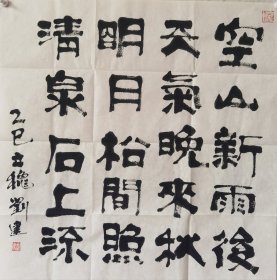 空山新雨後
天氣晚來秋
明月松間照
清泉石上流
乙巳 劉